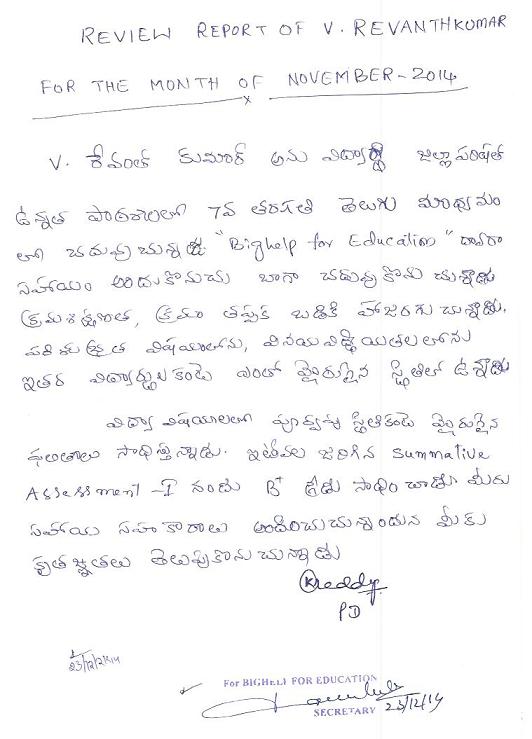 REVIEW REPORT OF V. REVANTHKUMAR
FOR THE MONTH OF NOVEMBER-2014
V. రేవంత్ కుమార్ అను విద్యార్థి జిల్లా పరిషత్
ఉన్నత పాఠశాలలో 7వ తరగతి తెలుగు మాధ్యమం
లో చదువుచున్నాడు "Bighelp for Education" ద్వారా
సహాయం అందుకొనుచు బాగా చదువుకొను చున్నాడు
క్రమశిక్షణత, క్రమం తప్పక బడికి హాజరగుచున్నాడు.
పరిశుభ్రత విషయంలోను, వినయ విధేయతలలోను
ఇతర విద్యార్థులకంటె ఎంతో మెరుగైన స్థితిలో ఉన్నాడు
విద్యా విషయాలలో పూర్వపు స్థితికంటె మెరుగైన
ఫలితాలు సాధిస్తున్నాడు. ఇటీవల జరిగిన Summative
Assessment -I నందు B+ గ్రేడు సాధించాడు. మీరు
సహాయ సహకారాలు అందించుచున్నందున మీకు
కృతజ్ఞతలు తెలుపుకొనుచున్నాడు
Kreddy
PD
23/12/2014
For BIGHELP FOR EDUCATION
23/12/14
SECRETARY